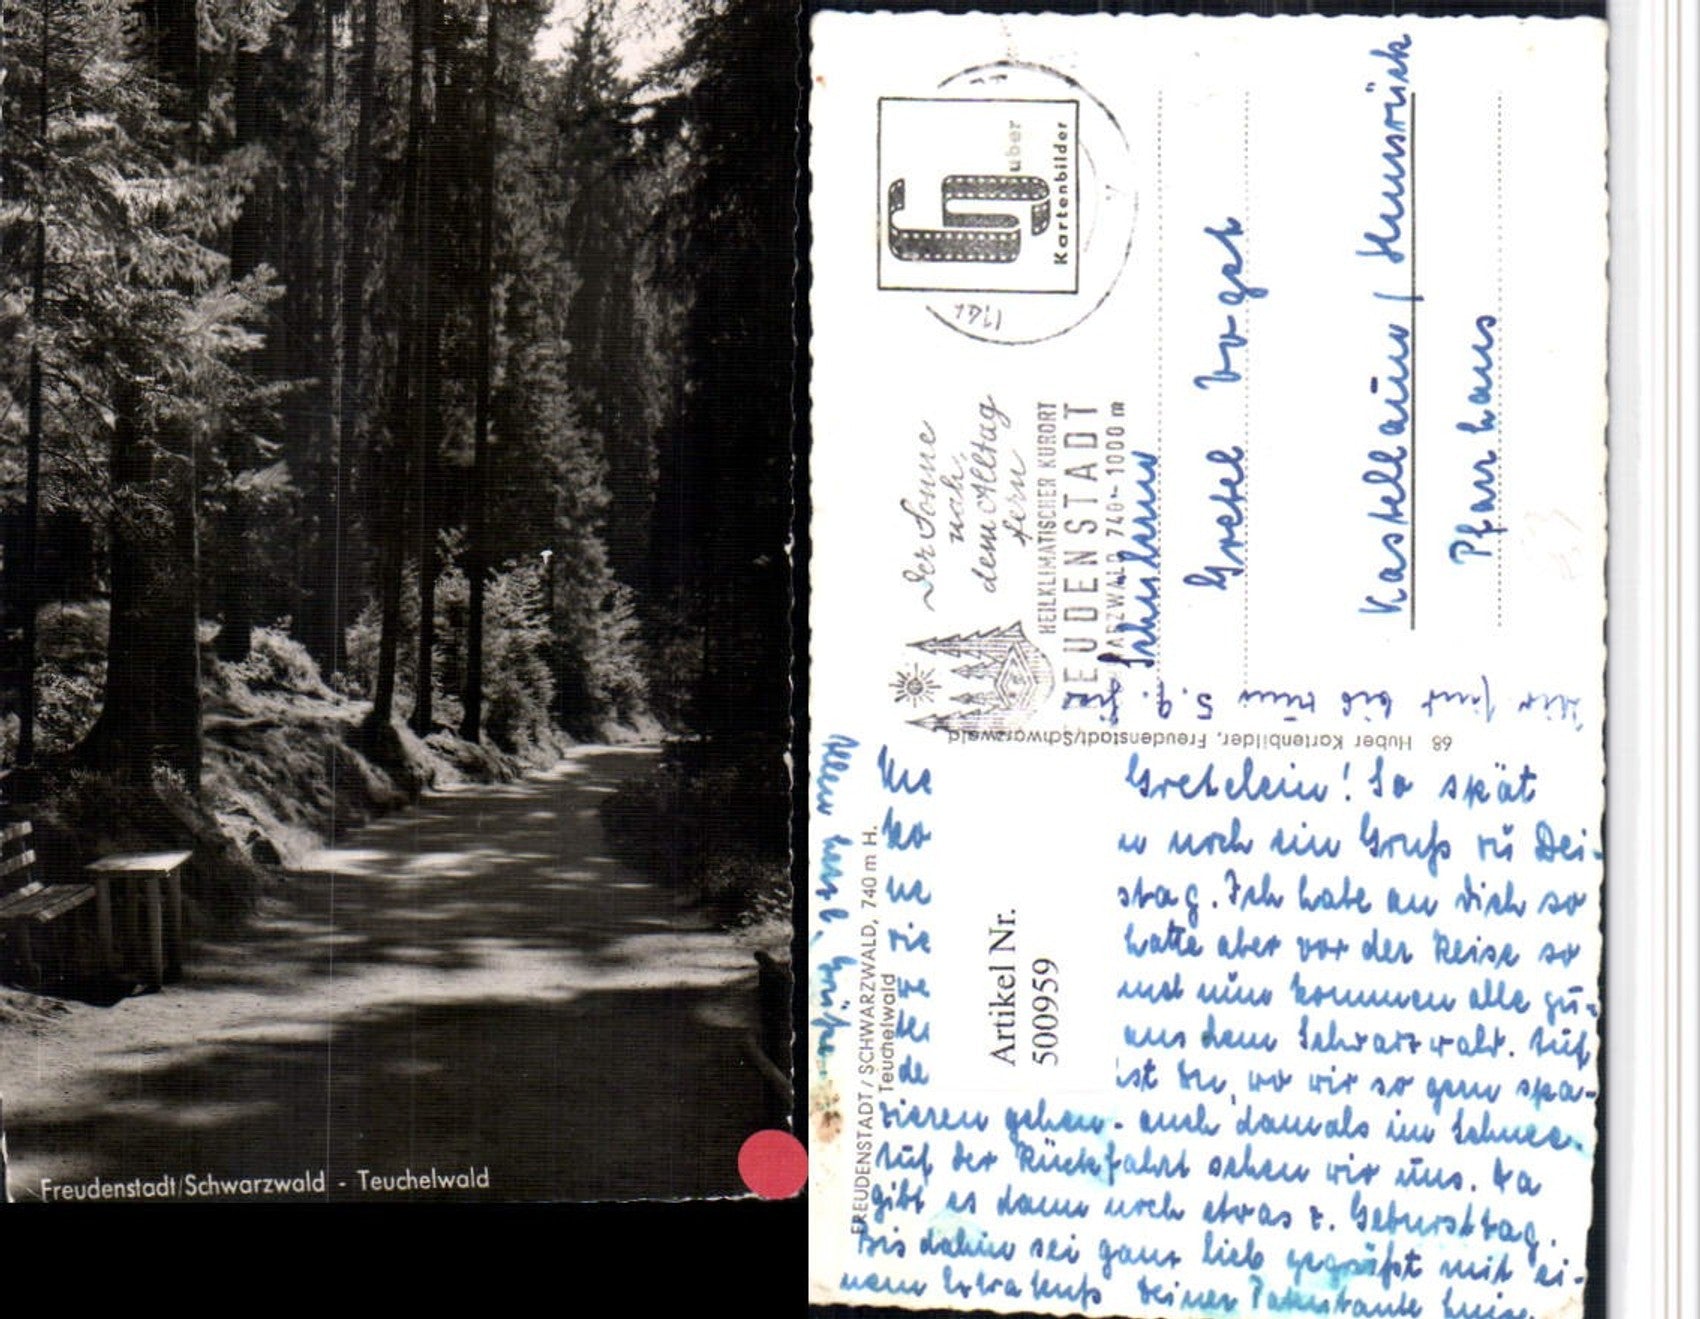 Freudenstadt/Schwarzwald - Teuchelwald
uber
Kartenbilder
Der Sonne
nah,
dem Alltag
fern
HEILKLIMATISCHER KURORT
EUDENSTADT
ARZWALD 740-1000 m
Gretel Vogt
Kastellaun / Hunsrück
Pfarrhaus
68 Huber Kartenbilder, Freudenstadt/Schwarzwald
bis zum 5.9.
FREUDENSTADT / SCHWARZWALD, 740 m H.
Teuchelwald
Artikel Nr.
500959
Allen herzl. Grüße
Gretelein! So spät
ko n noch ein Gruß zu Dei-
ne stag. Ich habe an Dich so
vie hatte aber vor der Reise so
we und nun kommen alle gu-
ten aus dem Schwarzwald. Auf
de ist Du, wo wir so gern spa-
zieren gehen - auch damals im Schnee.
Auf der Rückfahrt sehen wir uns. Da
gibt es dann noch etwas z. Geburtstag.
Bis dahin sei ganz lieb gegrüßt mit ei-
nem Extra Kuß Deiner Patentante Luise